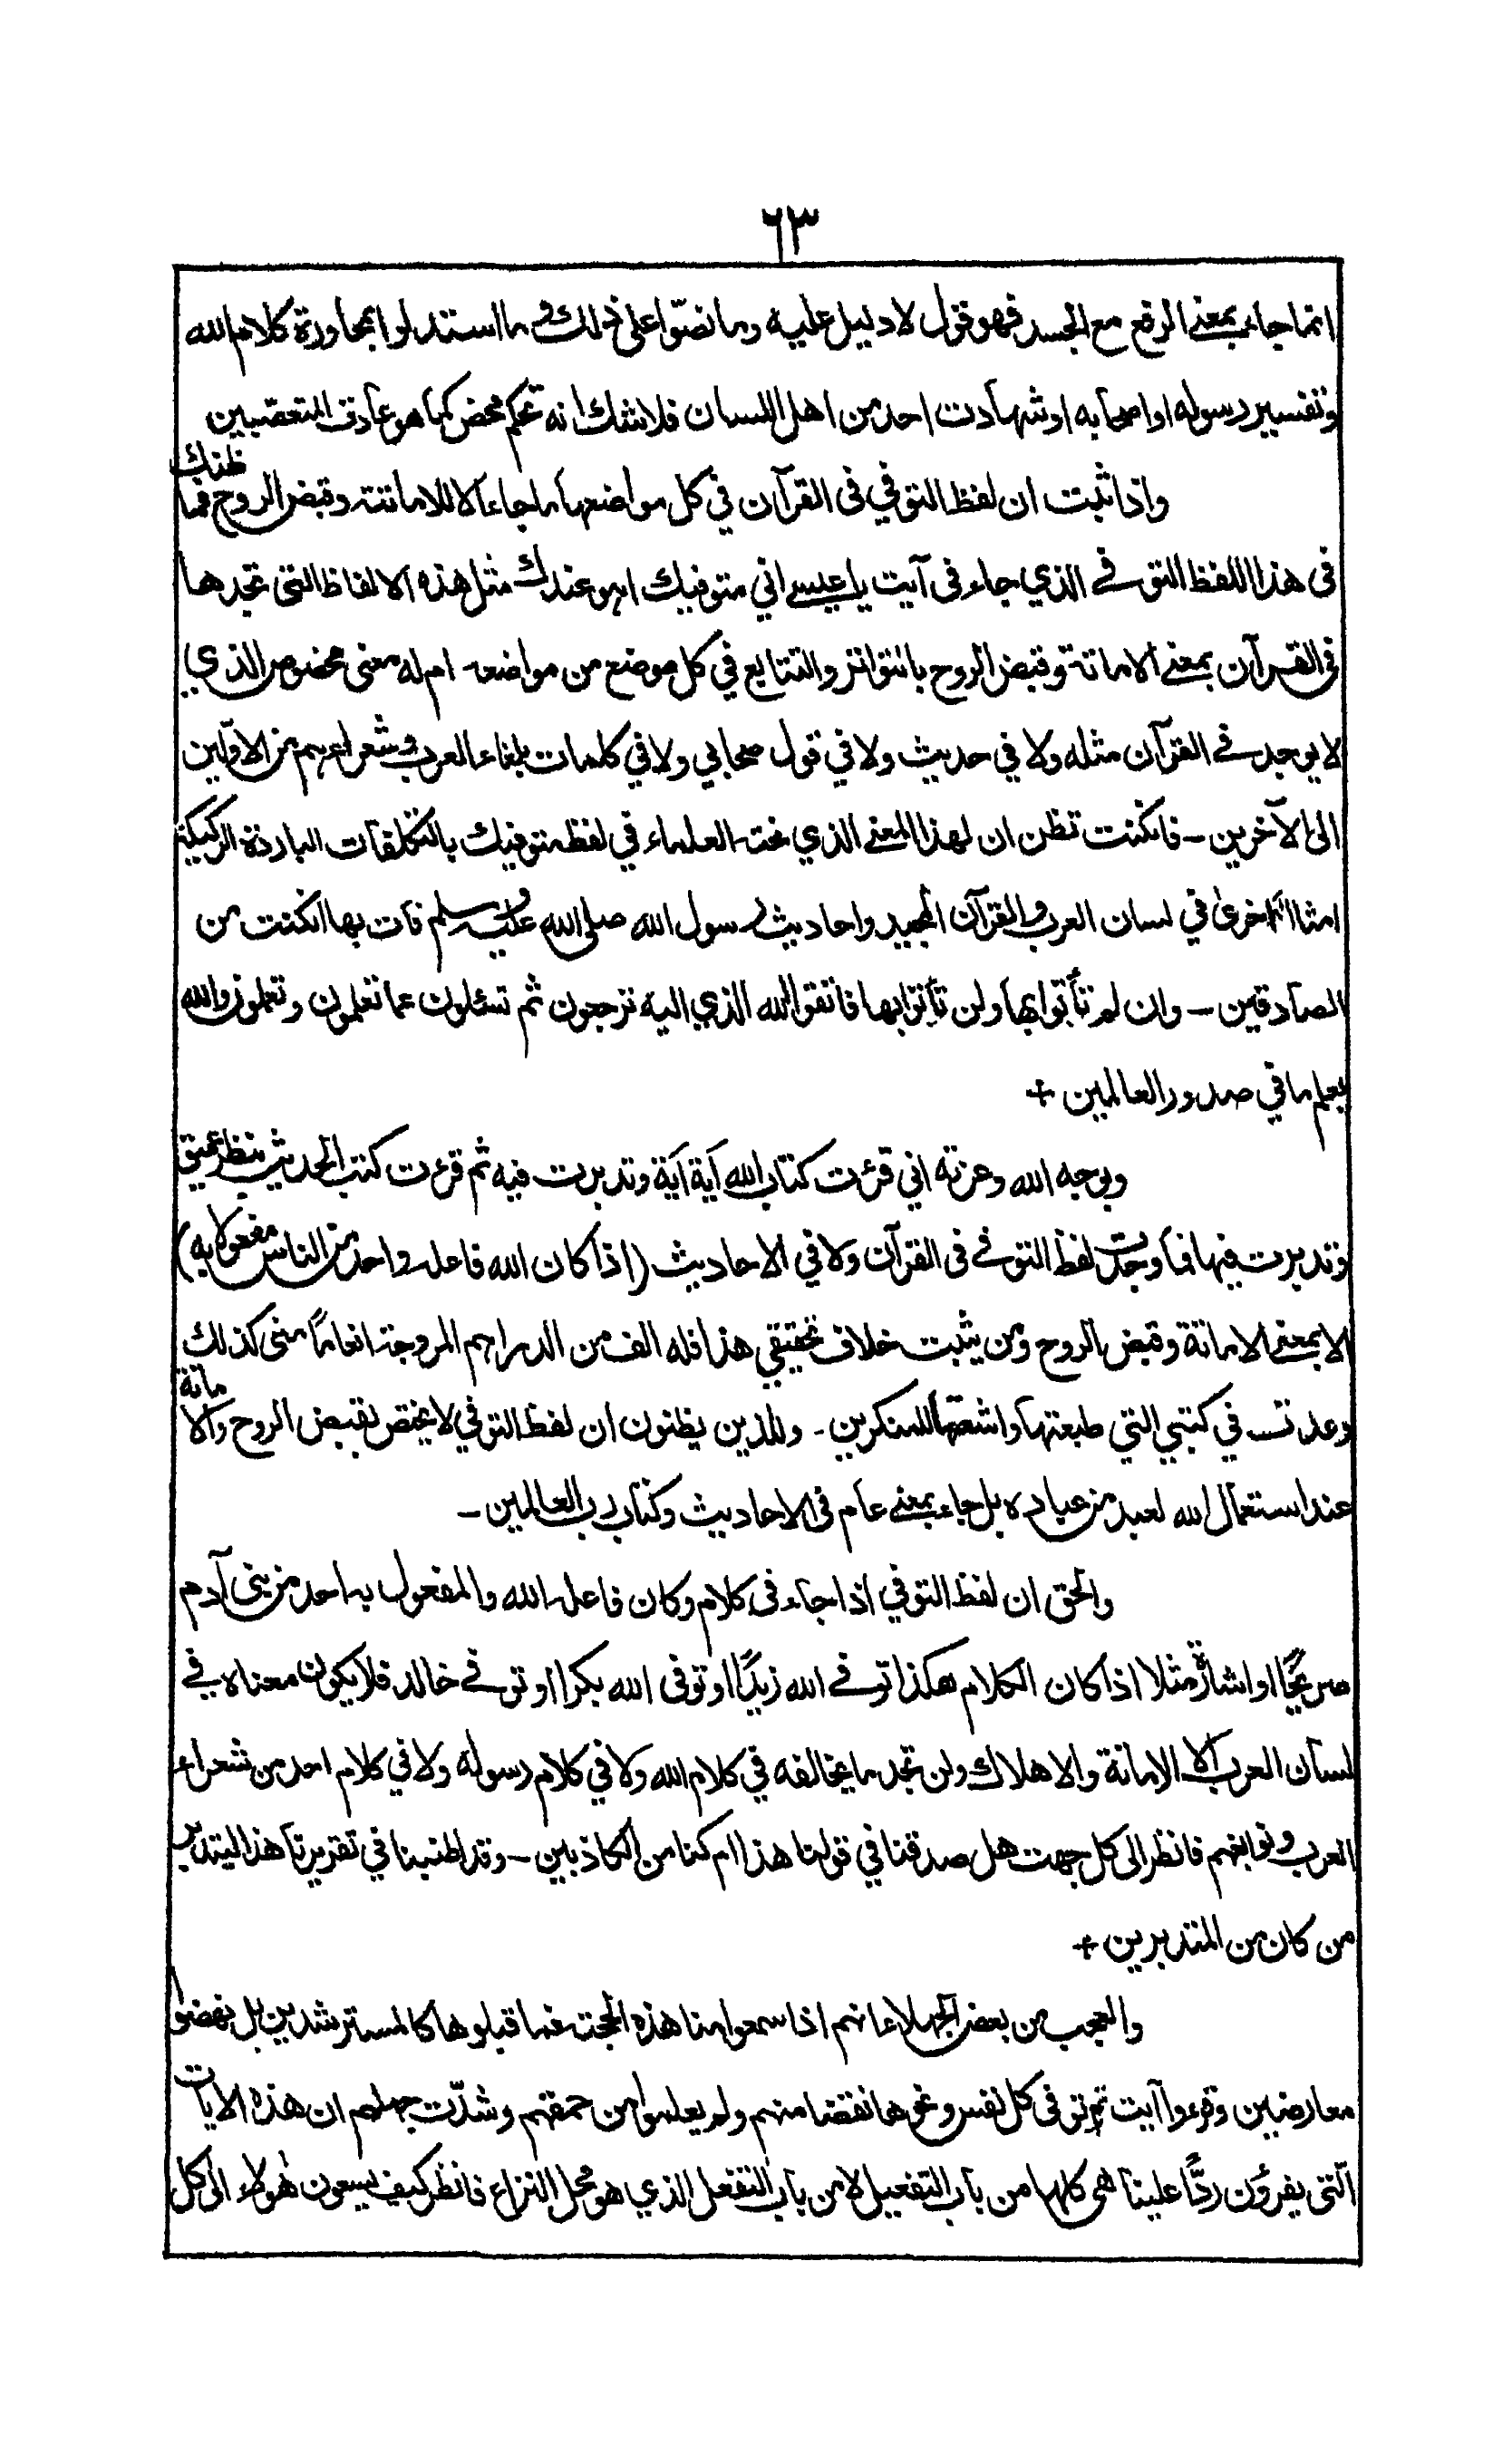 ٦٣
انما جاء بمعنى الرفع مع الجسد فهو قول لا دليل عليه وما نصّوا على ذلك و ما استدلوا بمحاورة كلام الله
وتفسير رسوله او اصحابه او شهادت احد من اهل اللسان فلا شك انه تحكم محض كما هو عادة المتعصبين
واذا ثبت ان لفظ التوفي فى القرآن في كل مواضعها ما جاء الا للاماتة وقبض الروح فما ظنك
فى هذا اللفظ التوفي الذي جاء فى آيت يا عيسى اني متوفيك اهو عندك مثل هذه الالفاظ التى تجدها
فى القرآن بمعنى الاماتة وقبض الروح بالتواتر والتتابع في كل موضع من مواضعه ام له معنى مخصوص الذي
لا يوجد في القرآن مثله ولا في حديث ولا في قول صحابي ولا في كلمات بلغاء العرب و شعراءهم من الاوّلين
الى الآخرين - فان كنت تظن ان لهذا المعنى الذي نحته العلماء في لفظ متوفيك بالتكلفات الباردة الركيكة
امثالا اخرى في لسان العرب والقرآن المجيد واحاديث رسول الله صلى الله عليه وسلم فات بها ان كنت من
الصادقين - وان لم تأتوا بها ولن تأتوا بها فاتقوا الله الذي اليه ترجعون ثم تسئلون عما تعلمون وتعملون والله
يعلم ما في صدور العالمين +
وبوجه الله وعزته اني قرئت كتاب الله آية آية وتدبرت فيه ثم قرءت كتب الحديث بنظر عميق
وتدبرت فيها فما وجدت لفظ التوفي فى القرآن ولا في الاحاديث (اذا كان الله فاعله واحد من الناس مفعولا به)
الا بمعنى الاماتة وقبض الروح ومن يثبت خلاف تحقيقي هذا فله الف من الدراهم المروجة انعامًا منى كذلك
وعدت في كتبي التي طبعتها واشعتها للمنكرين - وللذين يظنون ان لفظ التوفي لا يختص بقبض الروح والاماتة
عند استعمال الله لعبد من عباده بل جاء بمعنى عام فى الاحاديث وكتاب رب العالمين -
والحق ان لفظ التوفي اذا جاء فى كلام وكان فاعله الله والمفعول به احد من بنى آدم
صريحًا او اشارة مثلا اذا كان الكلام هكذا توفى الله زيدًا او توفى الله بكرا او توفى خالد فلا يكون معناه في
لسان العرب الا الاماتة والاهلاك ولن تجد ما يخالفه في كلام الله ولا في كلام رسوله ولا في كلام احد من شعراء
العرب ونوابغهم فانظر الى كل جهت هل صدقنا في قولنا هذا ام كنا من الكاذبين - وقد اطنبنا في تقريرنا هذا ليتدبر
من كان من المتدبرين +
والعجب من بعض الجهلاء انهم اذا سمعوا منا هذه الحجة فما قبلوها كالمسترشدين بل نهضوا
معارضين وقرءوا آيت ثم توفى كل نفس ونحوها نقضا منهم ولم يعلموا من حمقهم وشدّت جهلهم ان هذه الايات
الّتى يقرؤن ردًّا علينا هى كلها من باب التفعيل لا من باب التفعل الذي هو محل النزاع فانظر كيف يسعون هٰؤلاء الى كل